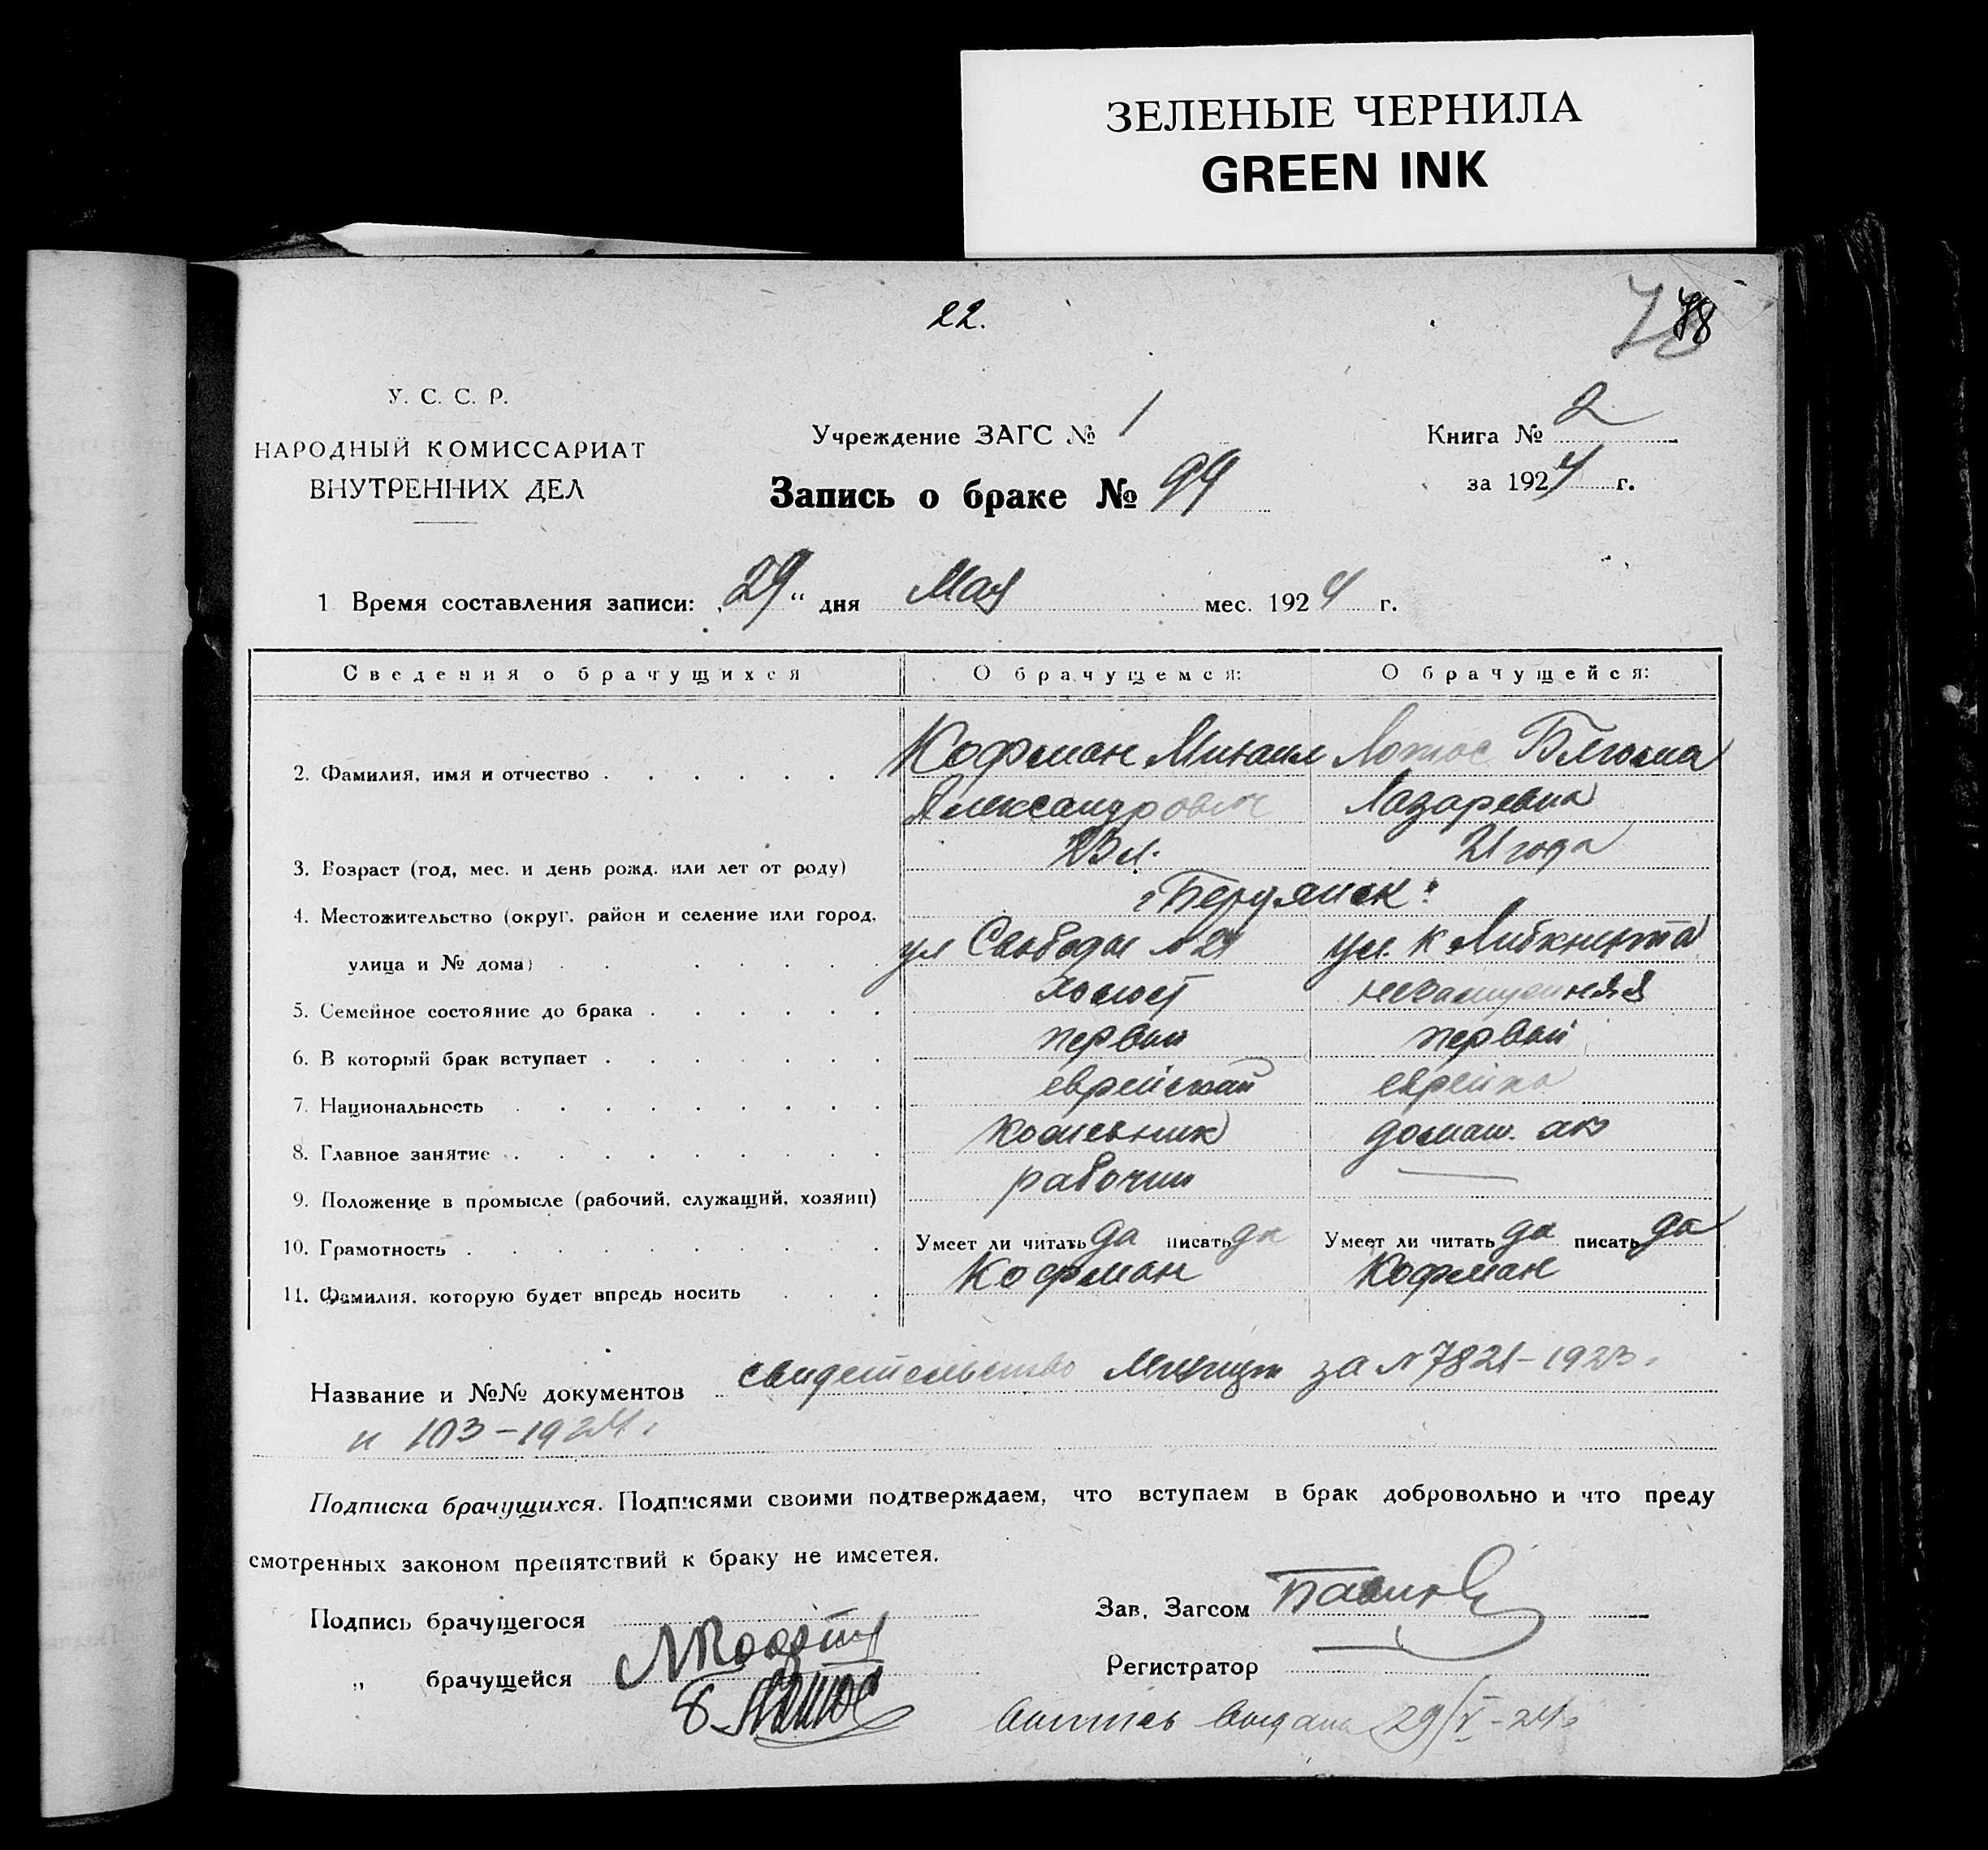 ЗЕЛЕНЫЕ ЧЕРНИЛА
GREEN INK
22.
78
У. С. С. Р.
НАРОДНЫЙ КОМИССАРИАТ
ВНУТРЕННИХ ДЕЛ
Учреждение ЗАГС № 1
Книга № 2
Запись о браке № 94
за 1924 г.
1 Время составления записи: „29“ дня Мая мес. 1924 г.
Сведения о брачущихся О брачущемся: О брачущейся:
2. Фамилия, имя и отчество Кофман Михаил Лотос
Александрович Лазаревна
3. Возраст (год, мес. и день рожд. или лет от роду) 23 л. 21 года
4. Местожительство (округ. район и селение или город, г Бердянск
улица и № дома) ул Свободы № 21 ул. К Либкнехта
5. Семейное состояние до брака холост незамужняя
6. В который брак вступает первый первый
7. Национальность еврейский еврейка
8. Главное занятие кожевник домаш.
9. Положение в промысле (рабочий, служащий, хозяин) рабочий —
10. Грамотность Умеет ли читать да писать да Умеет ли читать да писать да
11. Фамилия, которую будет впредь носить Кофман Кофман
Название и №№ документов свидетельство за № 7821 – 1923
и 103 – 1924 г.
Подписка брачущихся. Подписями своими подтверждаем, что вступаем в брак добровольно и что преду
смотренных законом препятствий к браку не имеется.
Подпись брачущегося
Зав. Загсом
„ брачущейся
Регистратор
Б. Лотос
выдана 29/V – 24 г.